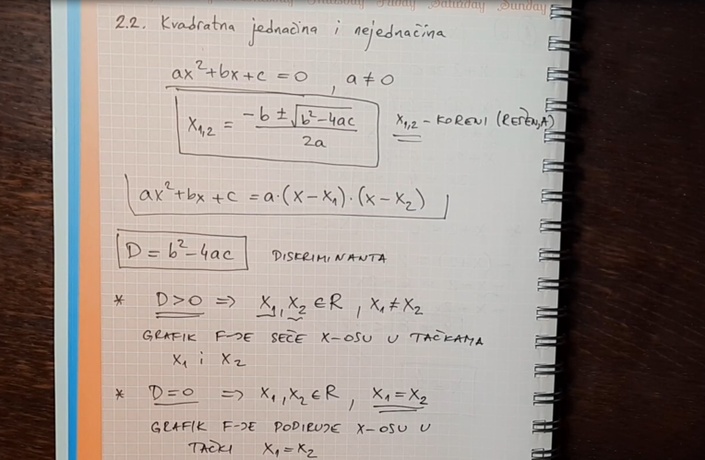 Friday Saturday Sunday
2.2. Kvadratna jednačina i nejednačina
ax²+bx+c=0, a≠0
x₁,₂ = (-b ± √(b²-4ac)) / 2a
x₁,₂ - KORENI (REŠENJA)
ax²+bx+c = a·(x-x₁)·(x-x₂)
D = b²-4ac DISKRIMINANTA
* D>0 ⇒ x₁,x₂ ∈R, x₁≠x₂
GRAFIK F-JE SEČE X-OSU U TAČKAMA
x₁ i x₂
* D=0 ⇒ x₁,x₂ ∈R, x₁=x₂
GRAFIK F-JE DODIRUJE X-OSU U
TAČKI x₁=x₂